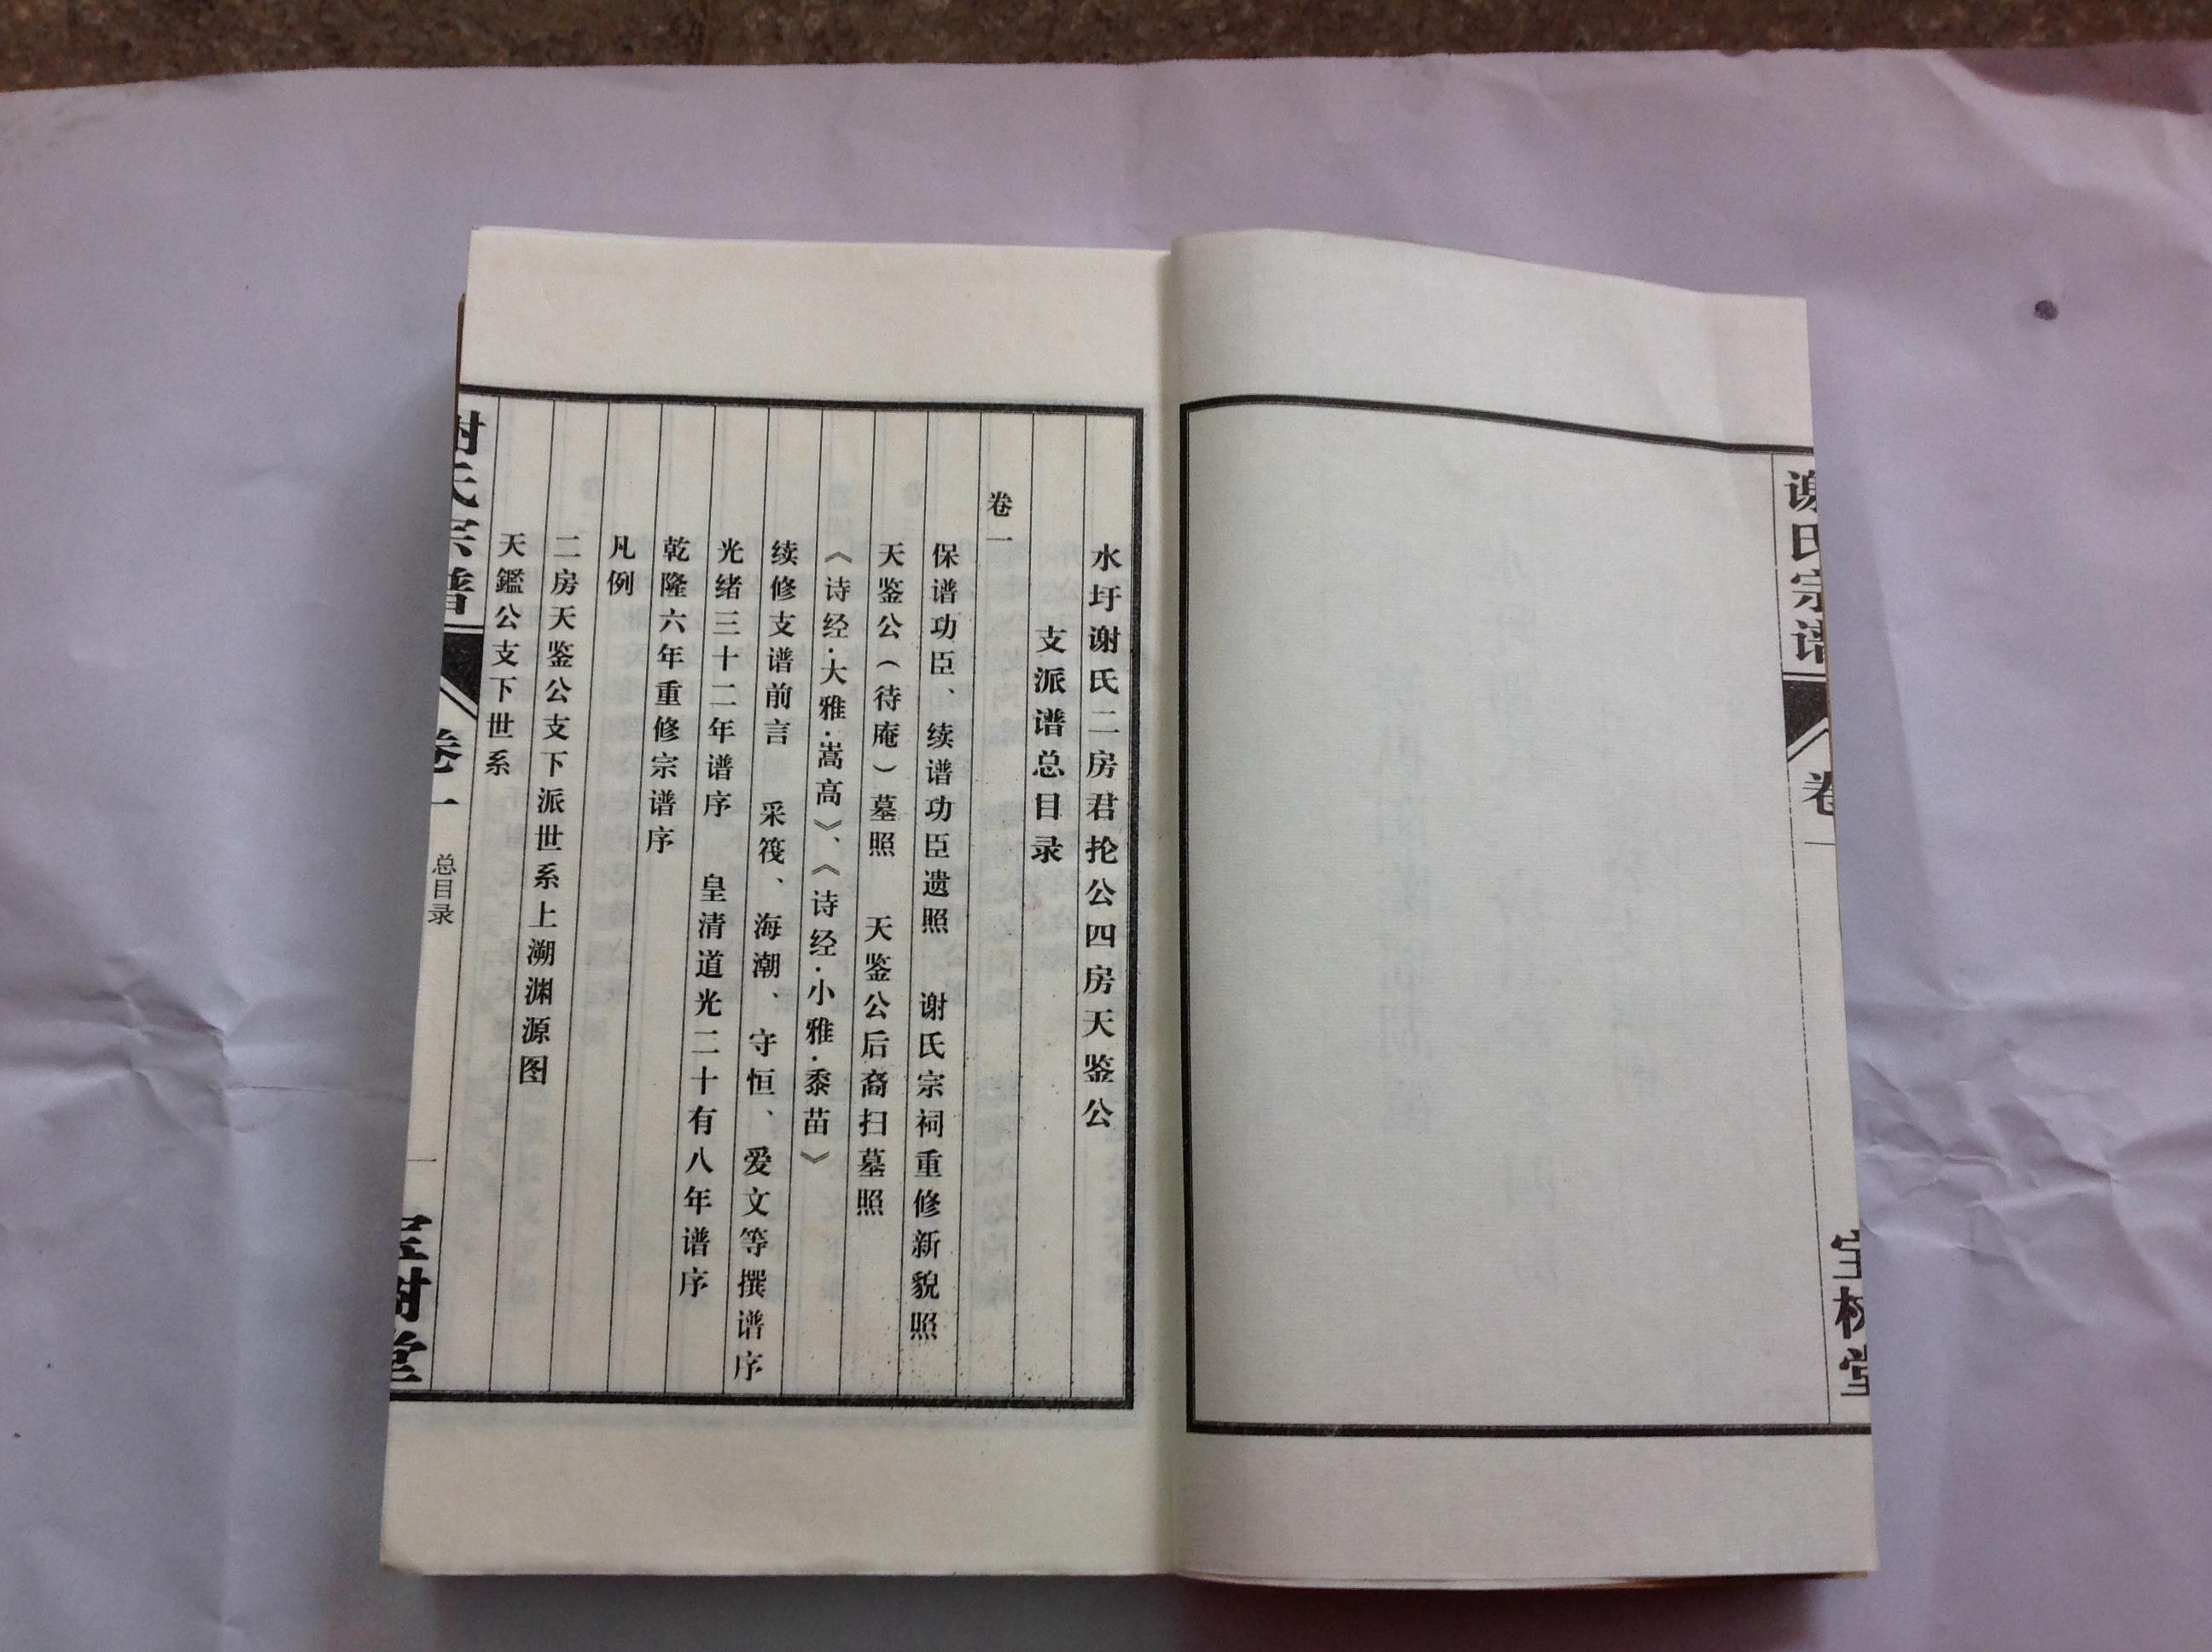 谢氏宗谱
卷一
宝树堂
水圩谢氏二房君抡公四房天鉴公
支派谱总目录
卷一
保谱功臣、续谱功臣遗照 谢氏宗祠重修新貌照
天鉴公（待庵）墓照 天鉴公后裔扫墓照
《诗经·大雅·嵩高》、《诗经·小雅·黍苗》
续修支谱前言 采筏、海潮、守恒、爱文等撰谱序
光绪三十二年谱序 皇清道光二十有八年谱序
乾隆六年重修宗谱序
凡例
二房天鉴公支下派世系上溯渊源图
天鑑公支下世系
谢氏宗谱
卷一
总目录
一
宝树堂